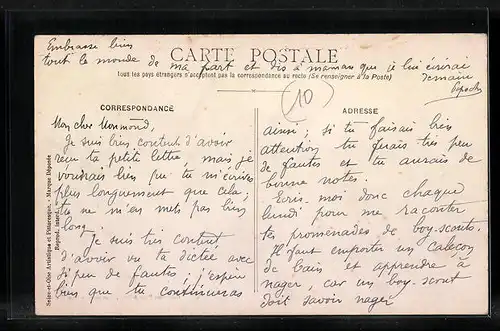 Embrasse bien
tout le monde de ma part et dis à maman que je lui écrirai
demain
CARTE POSTALE
Tous les pays étrangers n'acceptent pas la correspondance au recto (Se renseigner à la Poste)
10
CORRESPONDANCE
Mon cher Normond,
Je suis bien content d'avoir
reçu ta petite lettre, mais je
voudrais bien que tu m'écrives
plus longuement que cela;
tu ne m'en mets pas bien
long.
Je suis très content
d'avoir vu ta dictée avec
si peu de fautes, j'espère
bien que tu continueras
ADRESSE
ainsi; si tu faisais bien
attention tu ferais très peu
de fautes et tu aurais de
bonne notes.
Ecris moi donc chaque
lundi pour me raconter
tes promenades de boy-scouts.
Il faut emporter un caleçon
de bain et apprendre à
nager, car un boy-scout
doit savoir nager
Seine-et-Oise Artistique et Pittoresque. - Marque Déposée